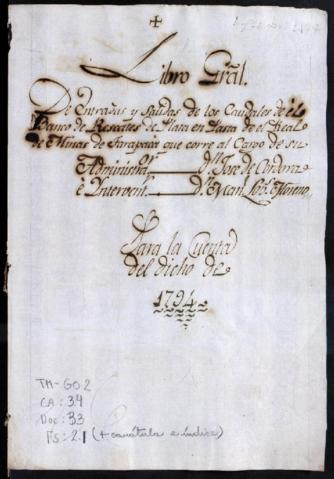 +
Libro Grãl.
De Entradas y Salidas de los Caudales de el
Banco de Rescates de Plata en Pasta de el Real
de Minas de Tarapacá que corre al Cargo de su
Administrõr. Dn. Jose de Cordova
é Intervent.r Dn. Man.
Para la Cuenta
del dicho de
1794
TM-GO 2
CA: 34
Doc: 33
Fs: 21 (+ carátula e índice)